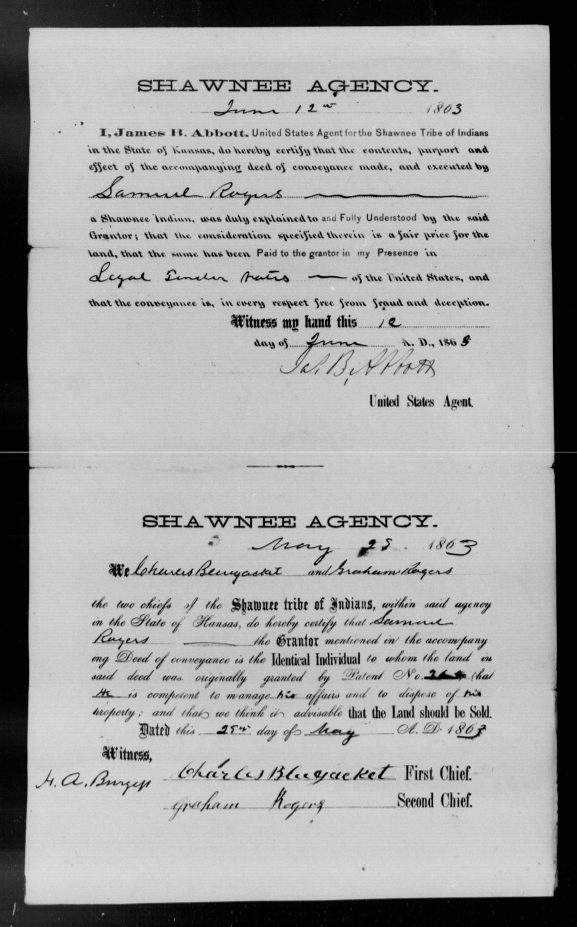 SHAWNEE AGENCY.
June 12th 1863
I, James B. Abbott, United States Agent for the Shawnee Tribe of Indians
in the State of Kansas, do hereby certify that the contents, purport and
effect of the accompanying deed of conveyance made, and executed by
Samuel Rogers
a Shawnee Indian, was duly explained to and Fully Understood by the said
Grantor; that the consideration specified therein is a fair price for the
land, that the same has been Paid to the grantor in my Presence in
Legal Tender notes of the United States, and
that the conveyance is, in every respect free from fraud and deception.
Witness my hand this 12
day of June A. D., 1863
Jas. B. Abbott
United States Agent.
SHAWNEE AGENCY.
May 25. 1863
We Charles Bluejacket and Graham Rogers
the two chiefs of the Shawnee tribe of Indians, within said agency
in the State of Kansas, do hereby certify that Samuel
Rogers the Grantor mentioned in the accompany
ing Deed of conveyance is the Identical Individual to whom the land in
said deed was originally granted by Patent No. that
He is competent to manage his affairs and to dispose of his
property; and that we think it advisable that the Land should be Sold.
Dated this 25th day of May A. D 1863
Witness,
H. A. Burgess
Charles Bluejacket First Chief.
Graham Rogers Second Chief.